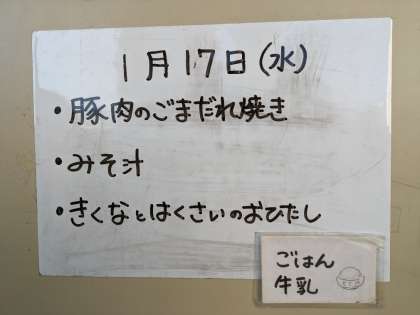 1月17日(水)
・豚肉のごまだれ焼き
・みそ汁
・きくなとはくさいのおひたし
ごはん
牛乳